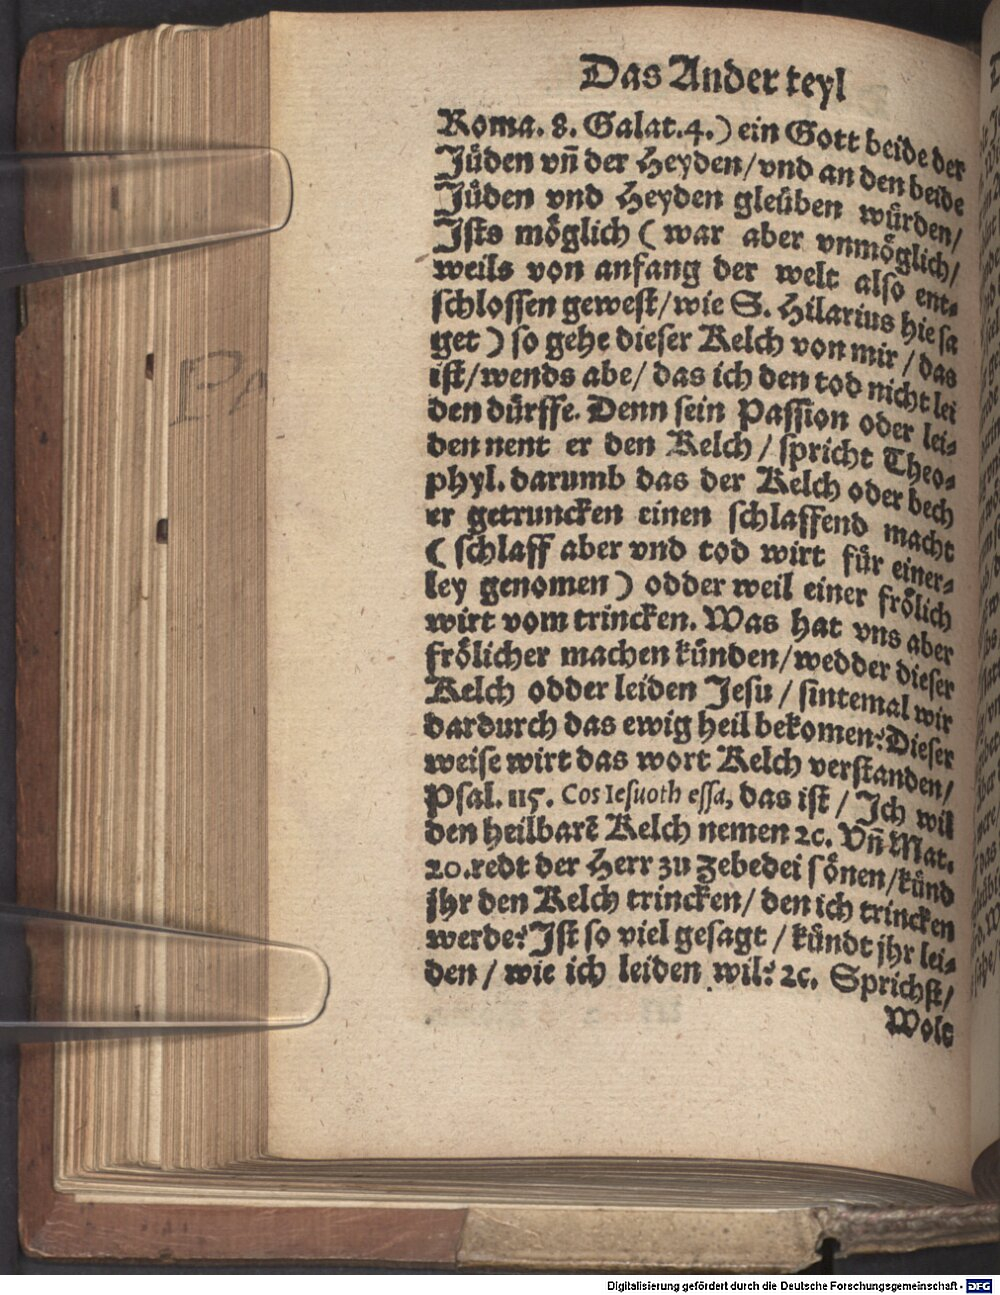 Das Ander teyl
Roma. 8. Galat. 4.) ein Gott beide der
Jüden vn̄ der Heyden/vnd an den beide
Jüden vnd Heyden gleüben würden/
Ists möglich ( war aber vnmöglich/
weils von anfang der welt also ent⸗
schlossen gewest/wie S. Hilarius hie sa
get ) so gehe dieser Kelch von mir / das
ist/wends abe/ das ich den tod nicht lei
den dürffe. Denn sein Passion oder lei⸗
den nent er den Kelch / spricht Theo⸗
phyl. darumb das der Kelch oder bech
er getruncken einen schlaffend macht
( schlaff aber vnd tod wirt für einer⸗
ley genomen ) odder weil einer frölich
wirt vom trincken. Was hat vns aber
frölicher machen künden/wedder dieser
Kelch odder leiden Jesu / sintemal wir
dardurch das ewig heil bekomen? Dieser
weise wirt das wort Kelch verstanden/
Psal. 115. Cos Iesuoth essa, das ist / Ich wil
den heilbarē Kelch nemen ꝛc. Vn̄ Mat.
20. redt der Herr zu Zebedei sönen/künd
jhr den Kelch trincken/ den ich trincken
werde? Ist so viel gesagt / kündt jhr lei⸗
den / wie ich leiden wil? ꝛc. Sprichst/
Wolt
PA
Digitalisierung gefördert durch die Deutsche Forschungsgemeinschaft - DFG